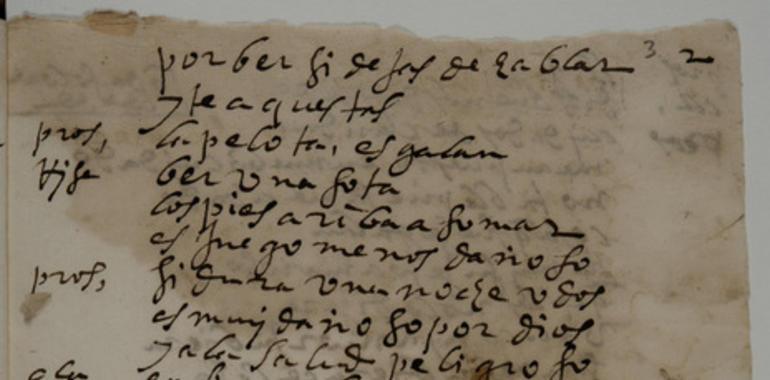 por ber si dejas de hablar 3 2
y te aquestas
pros, la pelota, es galan
ber una sota
los pies ariba asomar
es juego menos dañoso
pros, si dura una noche o dos
es muy dañoso por dios
y a la salud peligroso